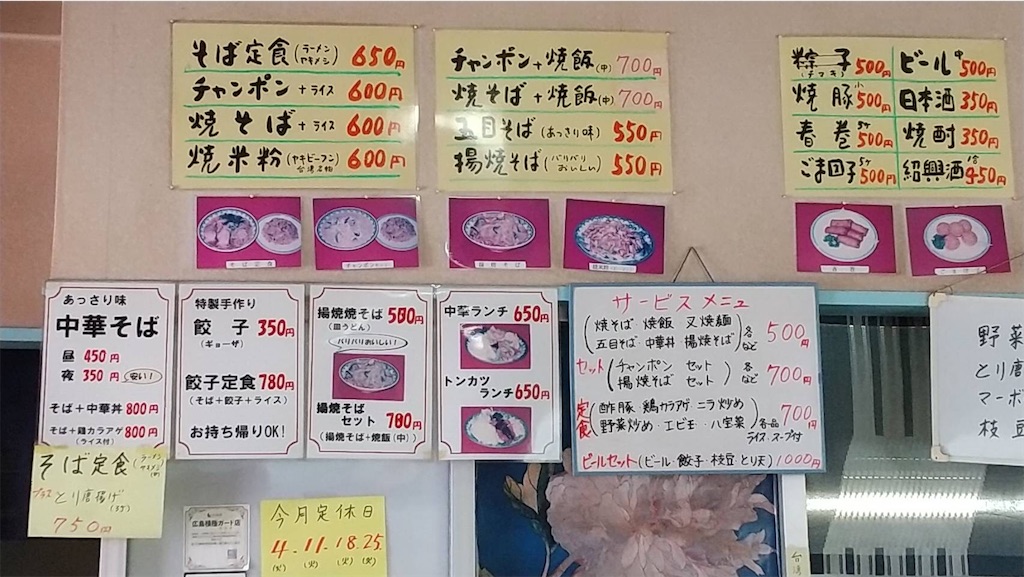 そば定食(ラーメン ヤキメシ) 650円
チャンポン +ライス 600円
焼そば +ライス 600円
焼米粉(ヤキビーフン 台湾名物) 600円
チャンポン+焼飯(中) 700円
焼そば+焼飯(中) 700円
五目そば(あっさり味) 550円
揚焼そば(バリバリおいしい) 550円
粽子(チマキ) 500円
焼豚 小 500円
春巻 5ケ 500円
ごま団子 5ケ 500円
ビール 中 500円
日本酒 350円
焼酎 350円
紹興酒 1合 450円
そば定食
あっさり味
中華そば
昼 450円
夜 350円 安い!
そば+中華丼 800円
そば+鶏カラアゲ 800円
(ライス付)
特製手作り
餃子 350円
(ギョーザ)
餃子定食 780円
(そば+餃子+ライス)
お持ち帰りOK!
揚焼焼そば 500円
(皿うどん)
バリバリおいしい!
揚焼そば
セット 700円
(揚焼そば+焼飯(中))
中華ランチ 650円
トンカツ
ランチ 650円
サービスメニュー
(焼そば・焼飯 叉焼麺
五目そば 中華丼 揚焼そば)各 など 500円
セット(チャンポン セット
揚焼そば セット)各 など 700円
定食(酢豚・鶏カラアゲ・ニラ炒め
野菜炒め・エビ玉・八宝菜)各品 700円
ライス・スープ付
ビールセット(ビール・餃子・枝豆・とり天) 1000円
野菜
とり唐
マーボ
枝豆
そば定食(ラーメン ヤキメシ(中))
プラス とり唐揚げ(3ケ)
750円
今月定休日
4.11.18.25.
(火)(火)(火)(火)
台湾